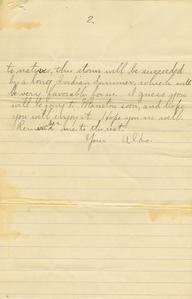 2.
to nature, this storm will be succeeded
by a long Indian Summer, which will
be very favorable for me. I guess you
will be going to Winston soon, and hope
you will enjoy it. Hope you are well.
Remember me to the rest.
Your Aldo.